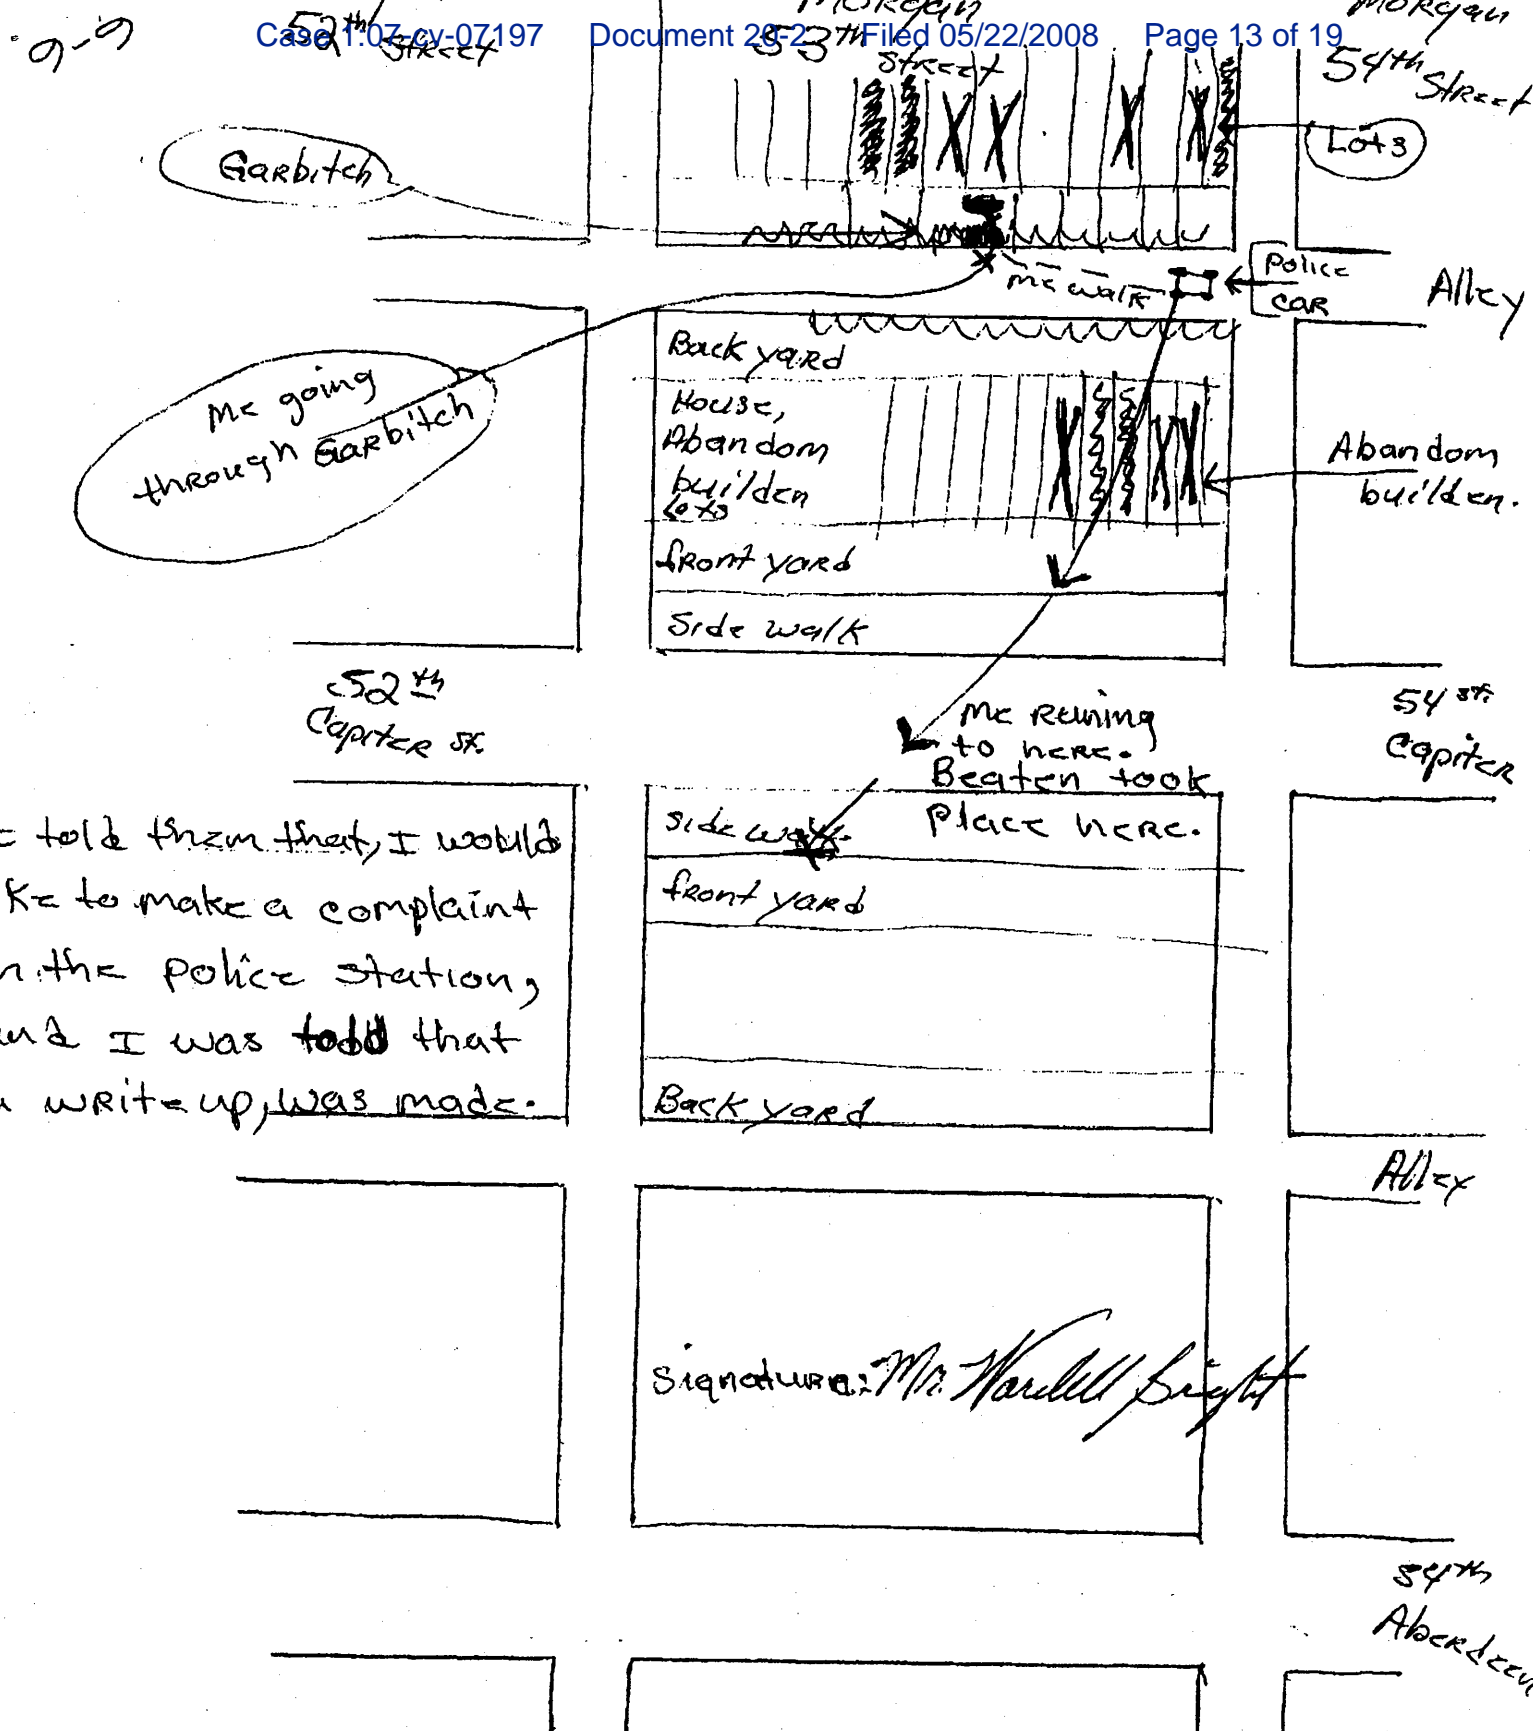 Case 1:07-cv-07197 Document 20-2 Filed 05/22/2008 Page 13 of 19
9-9
52th Street
Morgan
53th Street
Morgan
54th Street
Garbitch
Lots
Me walk
Police
CAR
Alley
Back yard
Me going
through Garbitch
House,
Abandom
builden
Lots
Abandom
builden.
front yard
Side walk
52th
Capiter st.
54 st.
Capiter
Me Runing
to here.
Beaten took
place here.
side walk
front yard
told them that, I would
to make a complaint
the police station,
I was told that
write up, was made.
Back yard
Alley
Signature: Mr. Wardell Bright
54th
Aberdeen